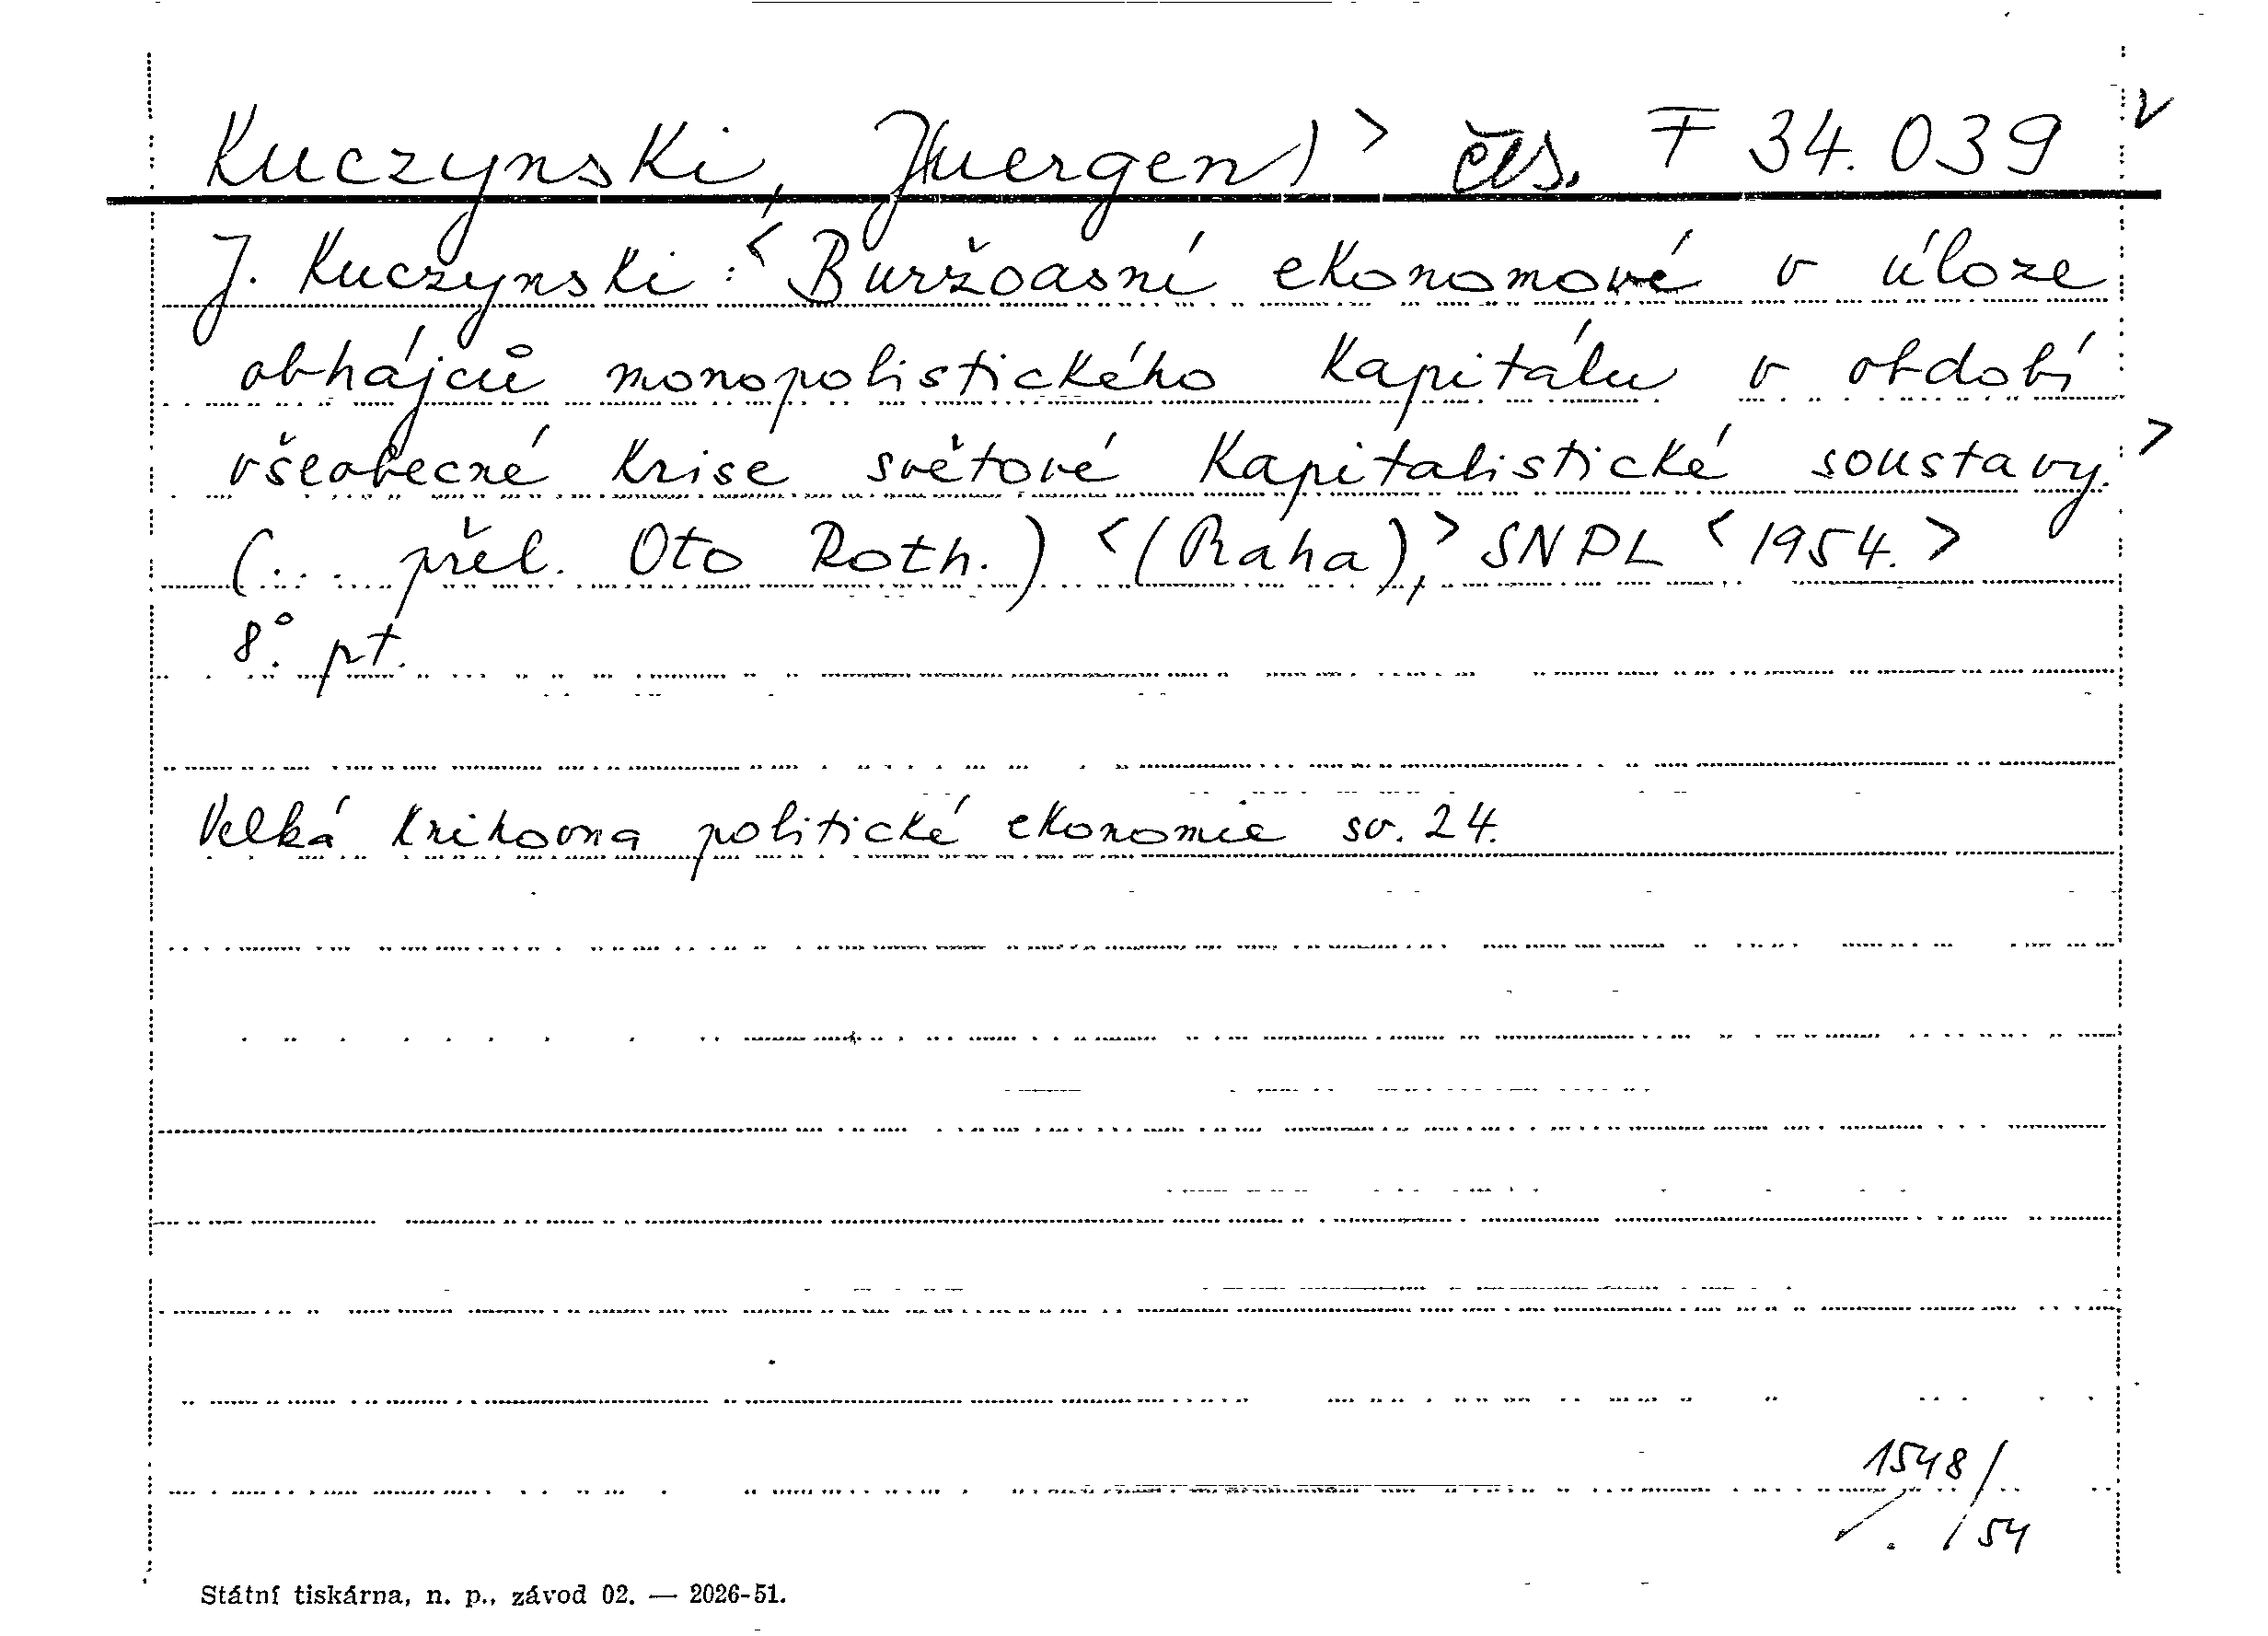 Kuczynski, J(uergen) > čes. F 34.039 v
J. Kuczynski: < Buržoasní ekonomové v úloze
obhájců monopolistického kapitálu v období
všeobecné krise světové kapitalistické soustavy. >
(... přel. Oto Roth.) < (Praha), > SNPL < 1954. >
8°. pt.
Velká knihovna politické ekonomie sv. 24.
1548/
/54
Státní tiskárna, n. p., závod 02. — 2026-51.